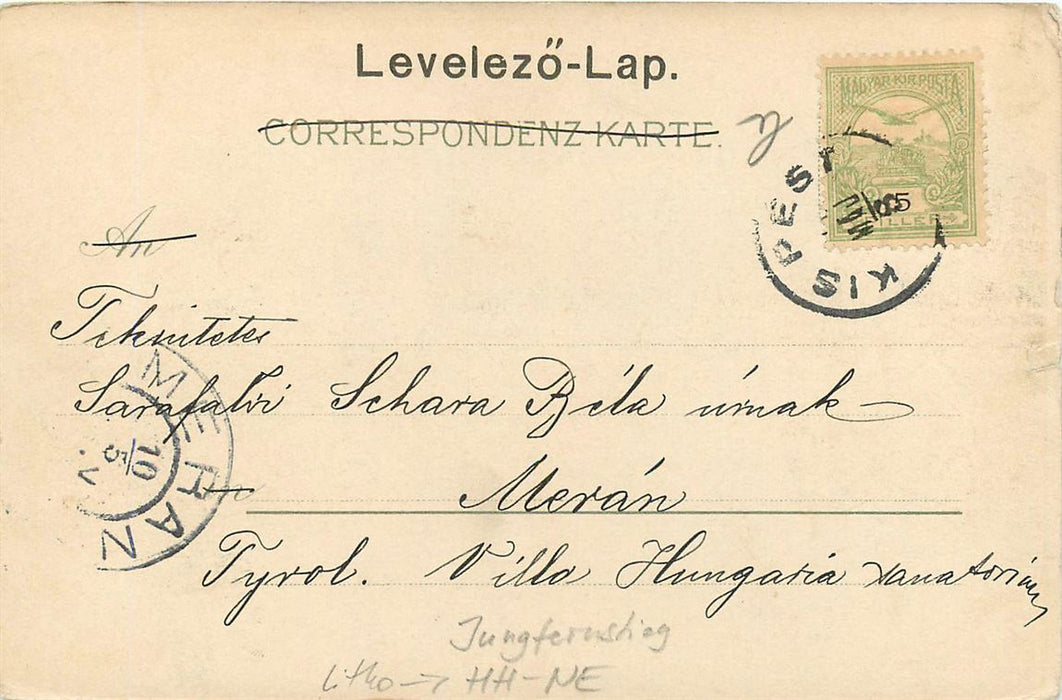 Levelező-Lap.
CORRESPONDENZ-KARTE.
MAGYAR KIR. POSTA
5
KISPEST
An
Tekintetes
Sárafalvi Schara Béla úrnak
Merán
Tyrol. Villa Hungaria sanatórium
MERAN
10
5
Jungfernstieg
Litho → HH-NE